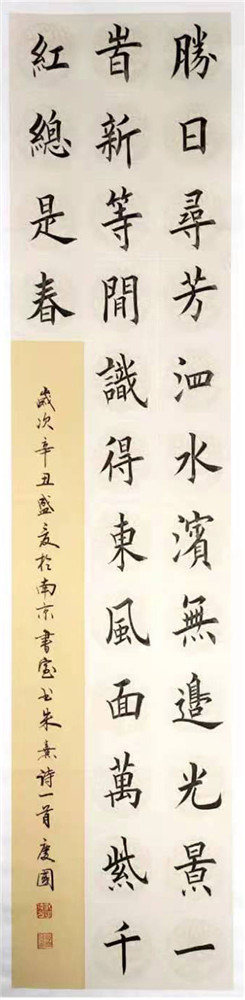 勝日尋芳泗水濱無邉光景一
旹新等閒識得東風面萬紫千
紅總是春
歲次辛丑盛夏於南京書室書朱熹詩一首慶國